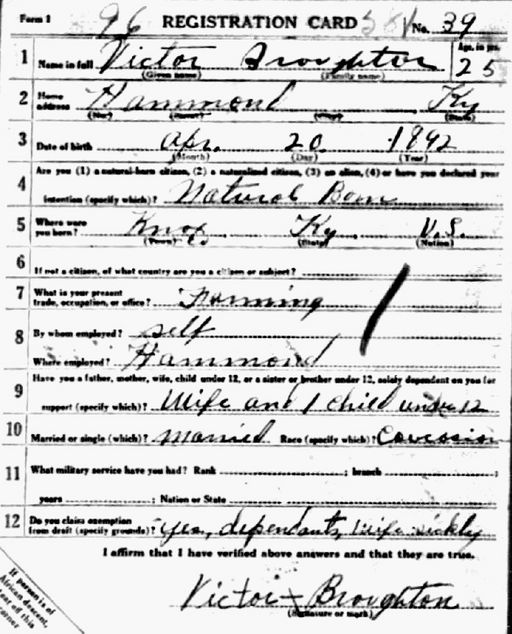 Form 1 96 REGISTRATION CARD No. 39
1 Name in full Victor Broughton Age, in yrs. 25
(Given name) (Family name)
2 Home address Hammond Ky
(No.) (Street) (City) (State)
3 Date of birth Apr. 20 1892
(Month) (Day) (Year)
4 Are you (1) a natural-born citizen, (2) a naturalized citizen, (3) an alien, (4) or have you declared your
intention (specify which)? Natural Born
5 Where were you born? Knox Co Ky U.S.
(Town) (State) (Nation)
6 If not a citizen, of what country are you a citizen or subject?
7 What is your present trade, occupation, or office? Farming
8 By whom employed? self
Where employed? Hammond
9 Have you a father, mother, wife, child under 12, or a sister or brother under 12, solely dependent on you for
support (specify which)? Wife and 1 child under 12
10 Married or single (which)? married Race (specify which)?
11 What military service have you had? Rank ; branch ;
years ; Nation or State
12 Do you claim exemption from draft (specify grounds)? yes, dependants, wife sickly
I affirm that I have verified above answers and that they are true.
Victor Broughton
(Signature or mark)
If person is of
African descent,
tear off this
corner